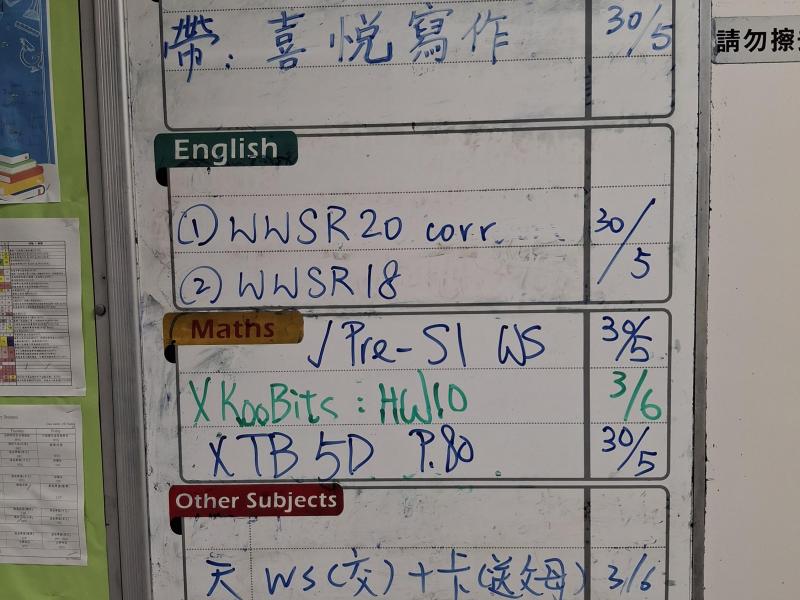 帶：喜悅寫作 30/5
請勿擦
English
① WWSR20 corr. 30/5
② WWSR18
Maths
√ Pre-S1 WS 30/5
X KooBits : HW10 3/6
X TB 5D P.80 30/5
Other Subjects
天 WS(交)+卡(送父母) 3/6